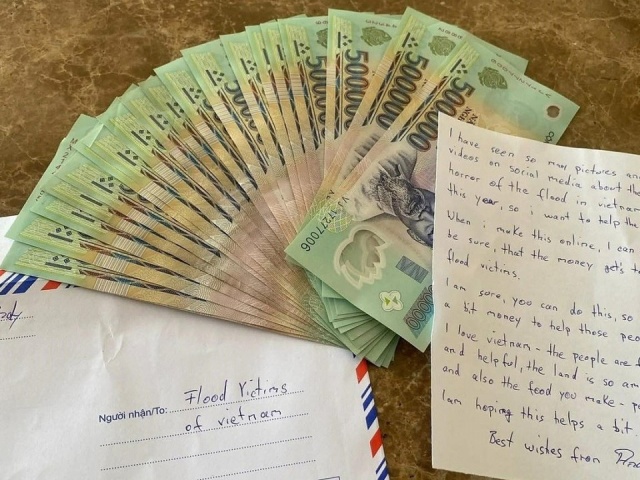 500000
500000
500000
500000
VJ 17277006
I have seen so many pictures and
videos on social media about the
horror of the flood in vietnam
this year, so i want to help the
When i make this online, I can
be sure, that the money get's t
flood victims.
I am sure, you can do this, so
a bit money to help those peo
I love vietnam - the people are f
and helpful, the land is so am
and also the food you make - p
I am hoping this helps a bit
Best wishes from
Người nhận/To: Flood Victims
of vietnam